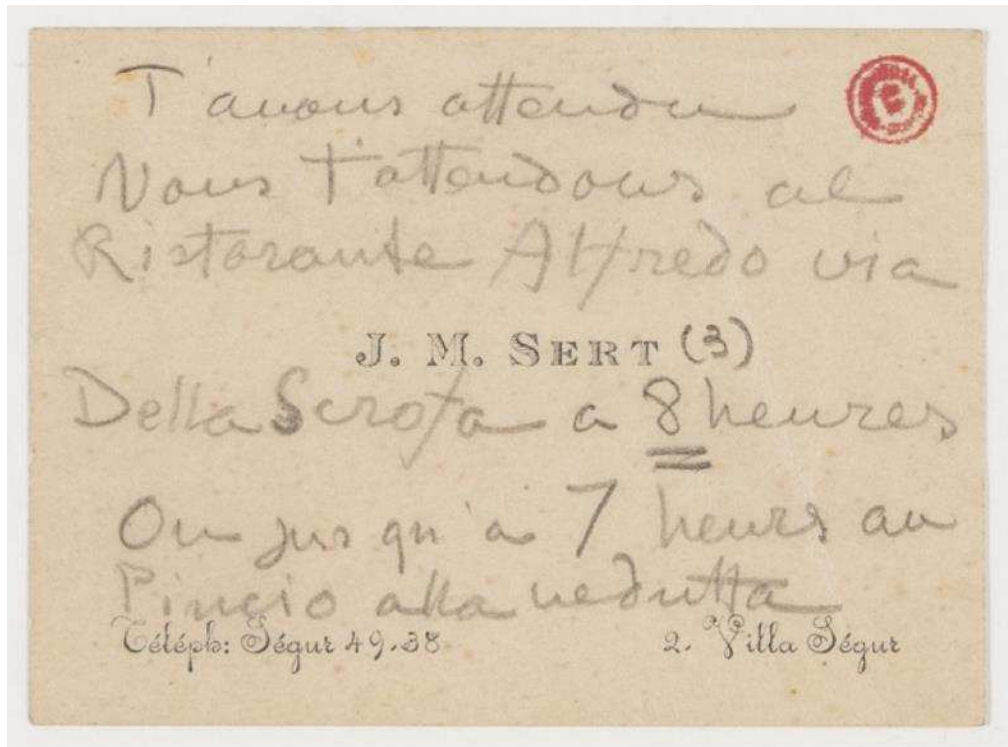 T'avons attendu
Nous t'attendons al
Ristorante Alfredo via
J. M. SERT (3)
Della Scrofa a 8 heures
Ou jusqu'a 7 heures au
Pincio alla vedutta
Téléph: Ségur 49.38 2. Villa Ségur